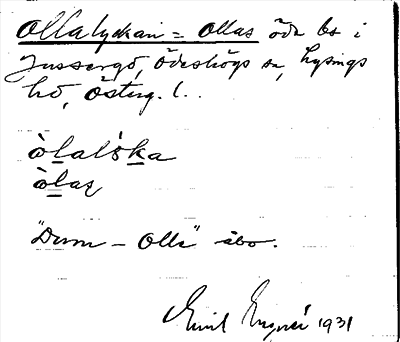 Ollalyckan = Ollas öde bs i
Jussergö, Ödeshögs sn, Lysings
hd, Österg. l..
òlalỳka
òlas
"Dum - Olle" åbo.
Emil 1931